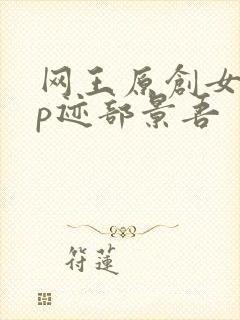 网王原創女
p迹部景吾
符蓮